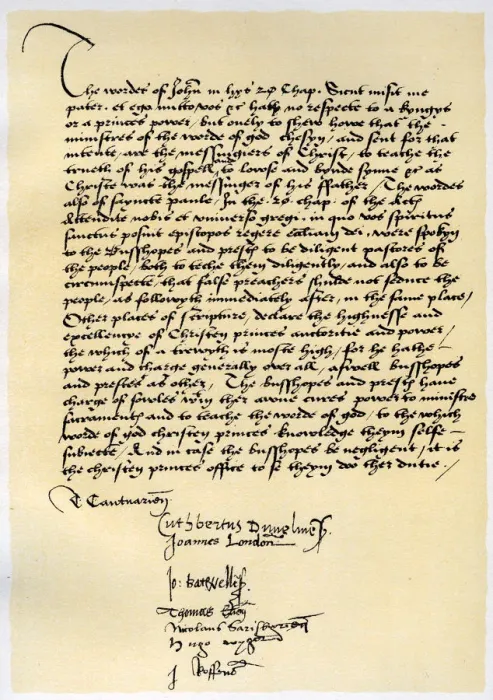 The wordes of John in hys 20 Chap. Sicut misit me
pater. et ego mitto vos &c hath no respecte to a kyngys
or a princes power, but onely to shew howe that the
ministres of the worde of god chosyn / and sent for that
intente, are the messangiers of Christ, to teache the
trueth of his gospell, and to loose and bynde synne &c as
Christe was the messinger of his ffather / The wordes
also of saynete paule / In the 20. chap. of the Acts
Attendite vobis et universo gregi. in quo vos spiritus
sanctus posuit episcopos regere ecclesiam dei, were spokyn
to the Busshopes and prests to be diligent pastores of
the people / both to teche them diligently, and also to be
circumspecte, that false preachers shulde not seduce the
people, as followyth immediately after, in the same place /
Other places of scripture, declare the highnesse and
excellencye of Christen princes auctoritie and power /
the which of a trewyth is moste high, for he hathe
power and charge generally over all, aswell busshopes
and prestes as other, The busshopes and prests have
charge of sowles w'in their awne cures power to ministre
sacraments and to teache the worde of god / to the which
worde of god christen princes knowledge theym selfe
subiecte / And in case the busshopes be negligent / it is
the christen princes office to se theym doo ther dutie . /
T Cantuarien
Cuthbertus Dunelmen
Joannes London
Jo: Bathwellis
Thomas Elien
Nicolaus Sarisburien
Hugo wygorn
J Roffens